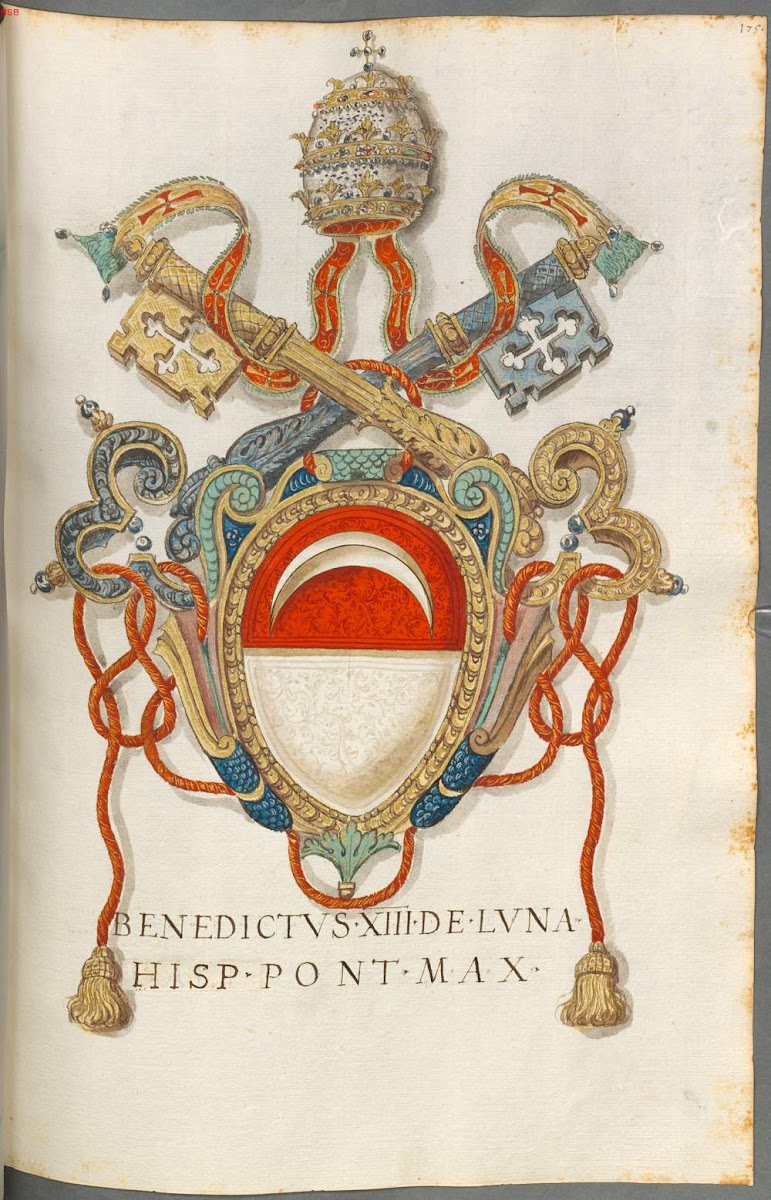 BSB
175.
BENEDICTVS·XIII·DE·LVNA·
HISP·PONT·MAX·